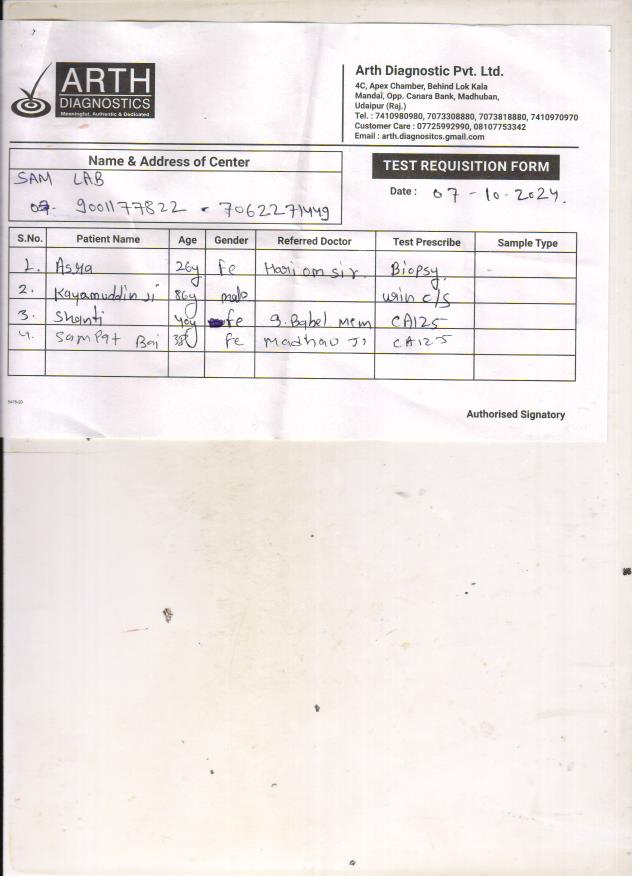 ARTH
DIAGNOSTICS
Meaningful, Authentic & Dedicated
Arth Diagnostic Pvt. Ltd.
4C, Apex Chamber, Behind Lok Kala
Mandal, Opp. Canara Bank, Madhuban,
Udaipur (Raj.)
Tel. : 7410980980, 7073308880, 7073818880, 7410970970
Customer Care : 07725992990, 08107753342
Email : arth.diagnositcs.gmail.com
Name & Address of Center
SAM LAB
9001177822 • 7062271449
TEST REQUISITION FORM
Date : 07-10-2024.
S.No. Patient Name Age Gender Referred Doctor Test Prescribe Sample Type
1. Asya 26y fe Hari om sir. Biopsy. -
2. Kayamuddin Ji 86y male urin c/s
3. Shanti 40y fe g. Babel mem CA125
4. Sampat Bai 38y fe madhav Ji CA125
Authorised Signatory